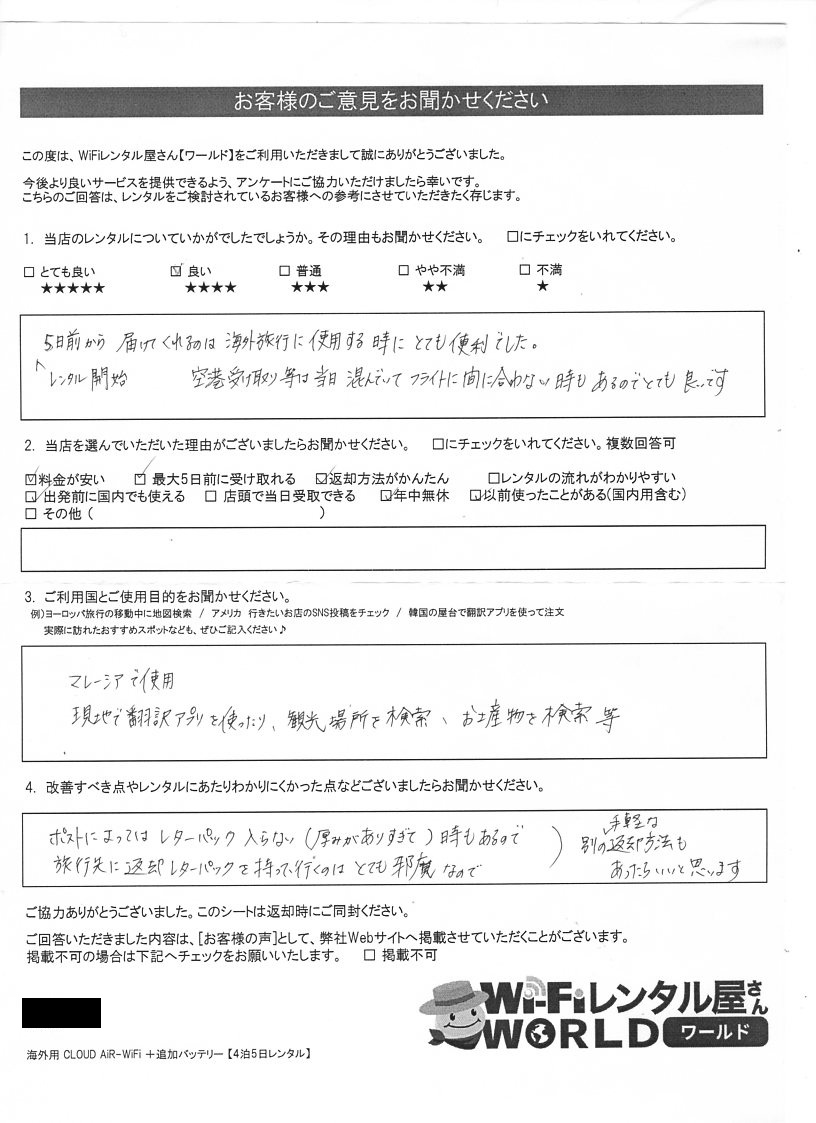 お客様のご意見をお聞かせください
この度は、WiFiレンタル屋さん【ワールド】をご利用いただきまして誠にありがとうございました。
今後より良いサービスを提供できるよう、アンケートにご協力いただけましたら幸いです。
こちらのご回答は、レンタルをご検討されているお客様への参考にさせていただきたく存じます。
1. 当店のレンタルについていかがでしたでしょうか。その理由もお聞かせください。 □にチェックをいれてください。
□ とても良い ☑ 良い □ 普通 □ やや不満 □ 不満
★★★★★ ★★★★ ★★★ ★★ ★
5日前から 届けてくれるのは 海外旅行に使用する時に とても便利でした。
レンタル開始 空港受け取り等は当日 混んでいて フライトに間に合わない時も あるのでとても 良いです
2. 当店を選んでいただいた理由がございましたらお聞かせください。 □にチェックをいれてください。複数回答可
☑料金が安い ☑ 最大5日前に受け取れる ☑返却方法がかんたん □レンタルの流れがわかりやすい
☑出発前に国内でも使える □ 店頭で当日受取できる ☑年中無休 ☑以前使ったことがある(国内用含む)
□ その他 ( )
3. ご利用国とご使用目的をお聞かせください。
例)ヨーロッパ旅行の移動中に地図検索 / アメリカ 行きたいお店のSNS投稿をチェック / 韓国の屋台で翻訳アプリを使って注文
実際に訪れたおすすめスポットなども、ぜひご記入ください♪
マレーシアで使用
現地で翻訳アプリを使ったり、観光場所を検索、お土産物を検索 等
4. 改善すべき点やレンタルにあたりわかりにくかった点などございましたらお聞かせください。
ポストによっては レターパック 入らない (厚みがありすぎて) 時もあるので
旅行先に返却レターパックを持って行くのは とても邪魔なので
手軽な
別の返却方法も
あったらいいと思います
ご協力ありがとうございました。このシートは返却時にご同封ください。
ご回答いただきました内容は、[お客様の声]として、弊社Webサイトへ掲載させていただくことがございます。
掲載不可の場合は下記へチェックをお願いいたします。 □ 掲載不可
Wi-Fiレンタル屋さん
WORLD ワールド
海外用 CLOUD AiR-WiFi +追加バッテリー【4泊5日レンタル】